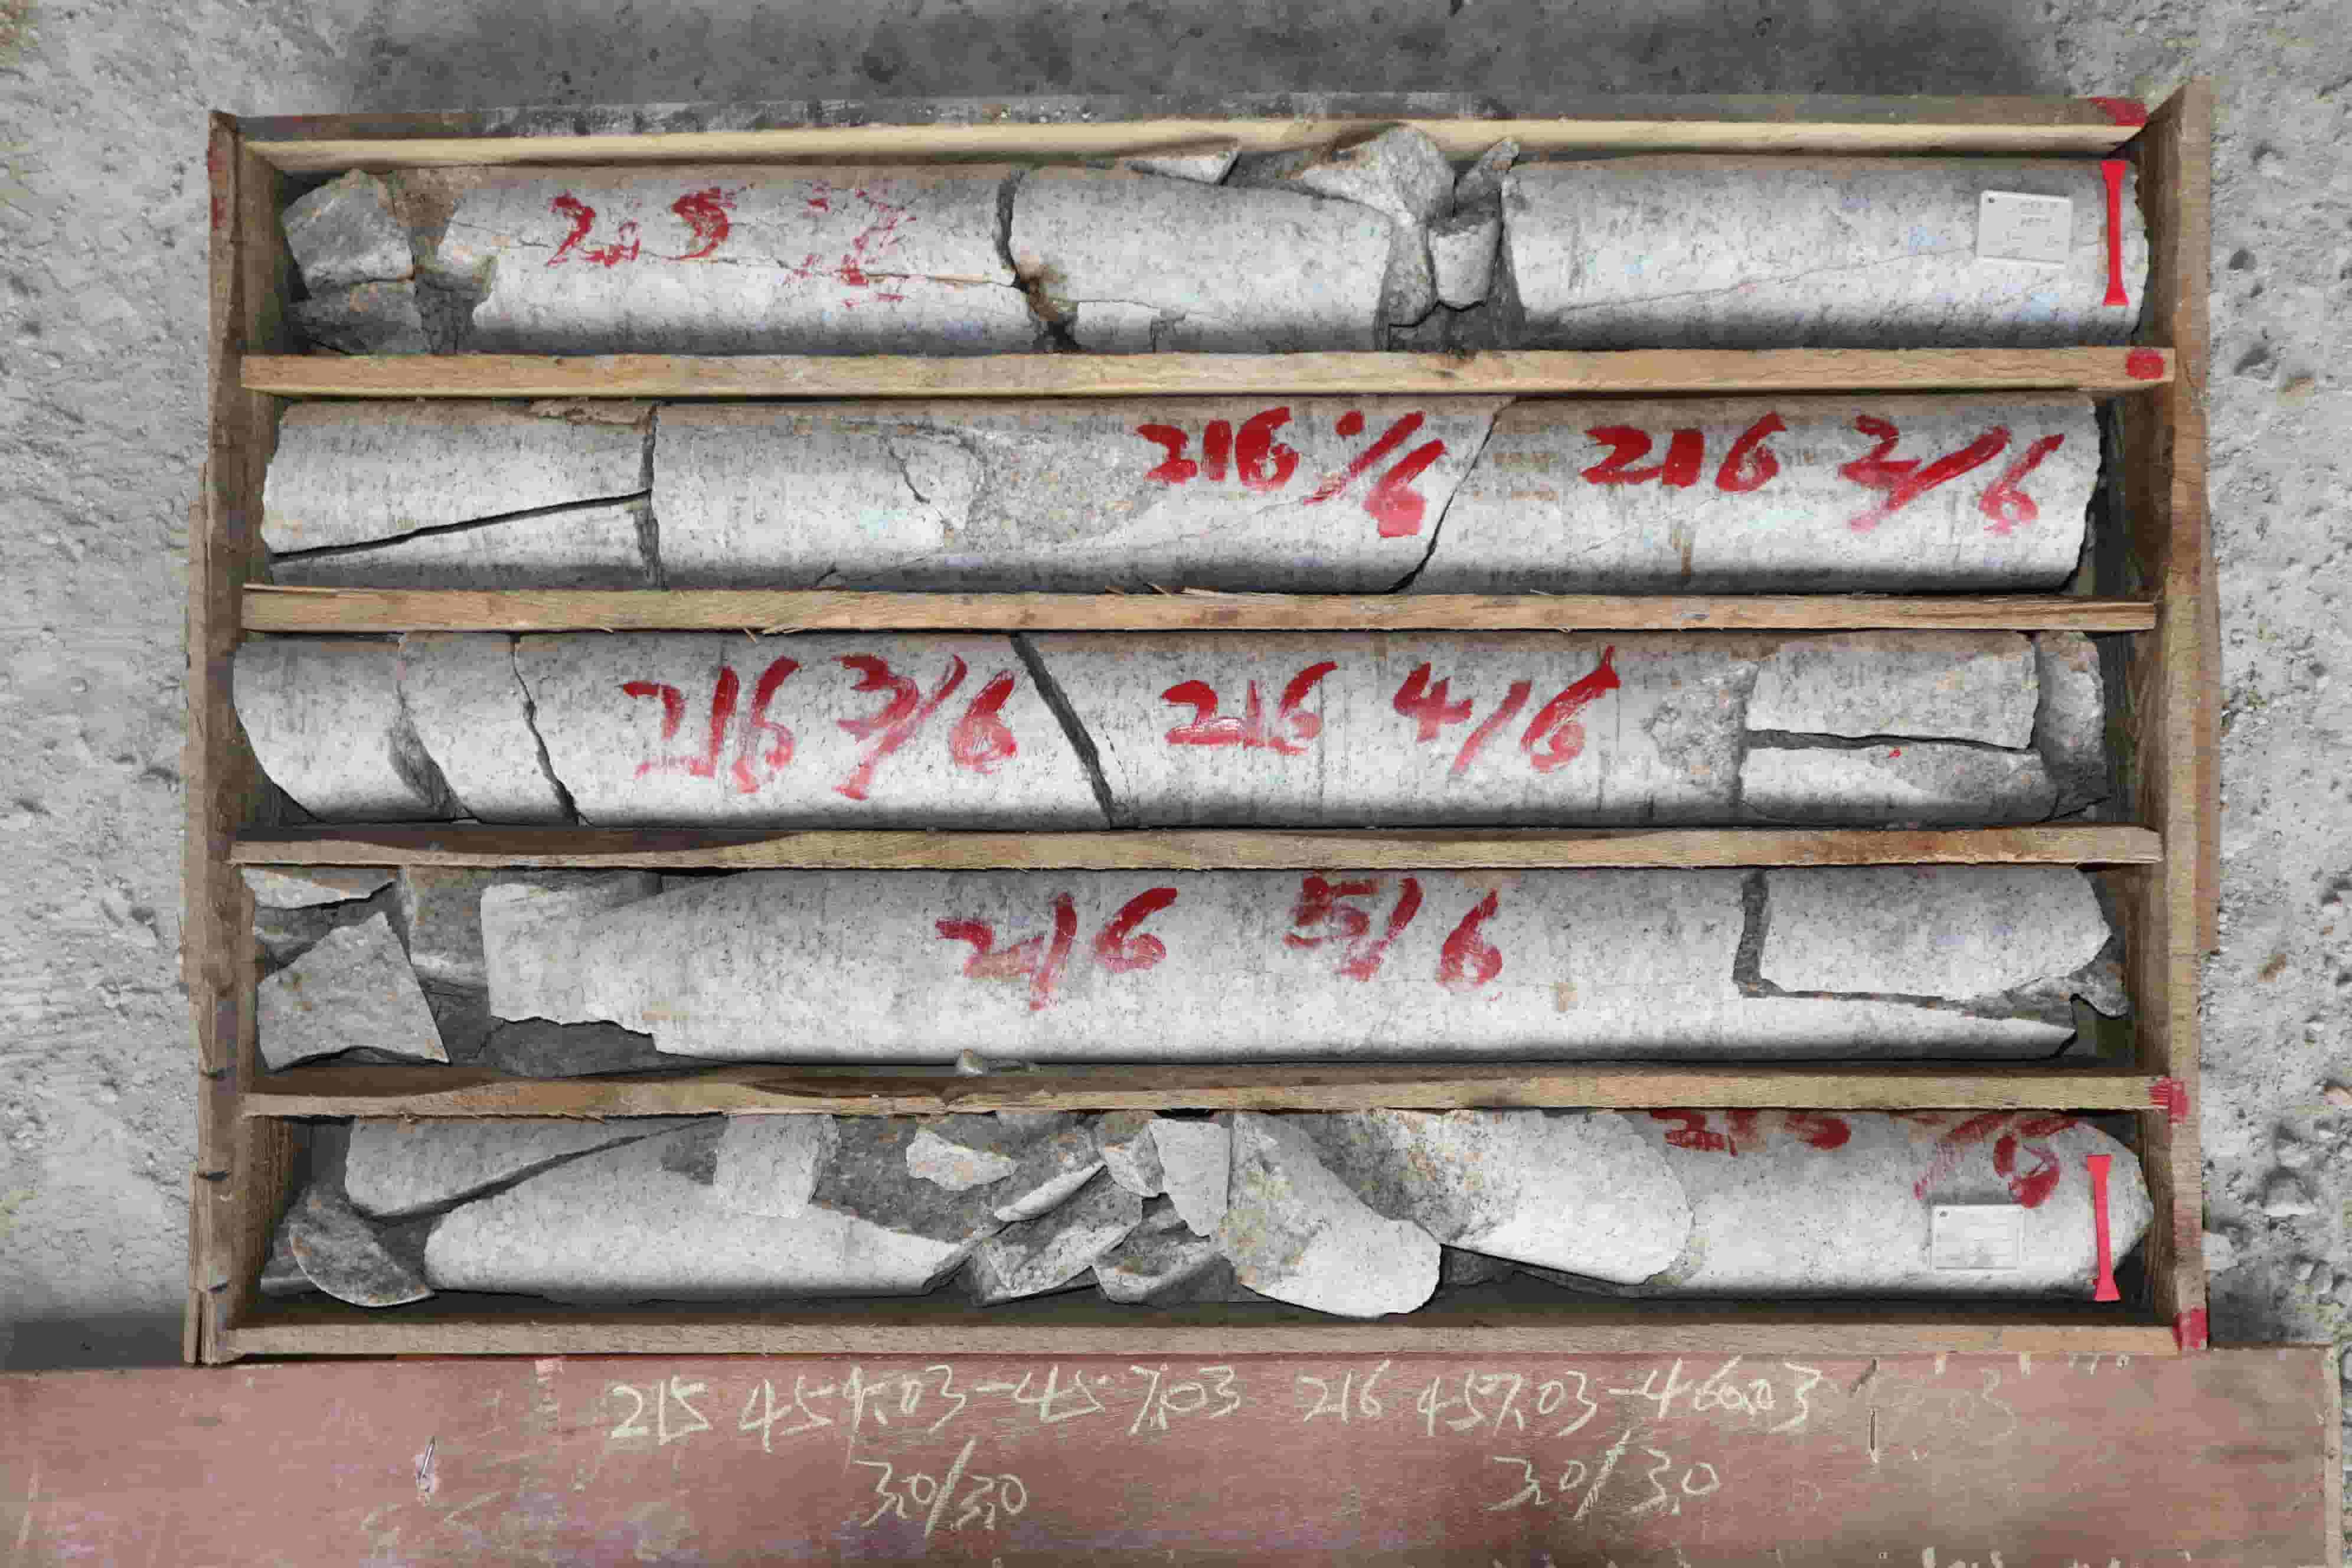 216 1/6
216 2/6
216 3/6
216 4/6
216 5/6
215 454.03-457.03 216 457.03-460.03
3.0/3.0 3.0/3.0